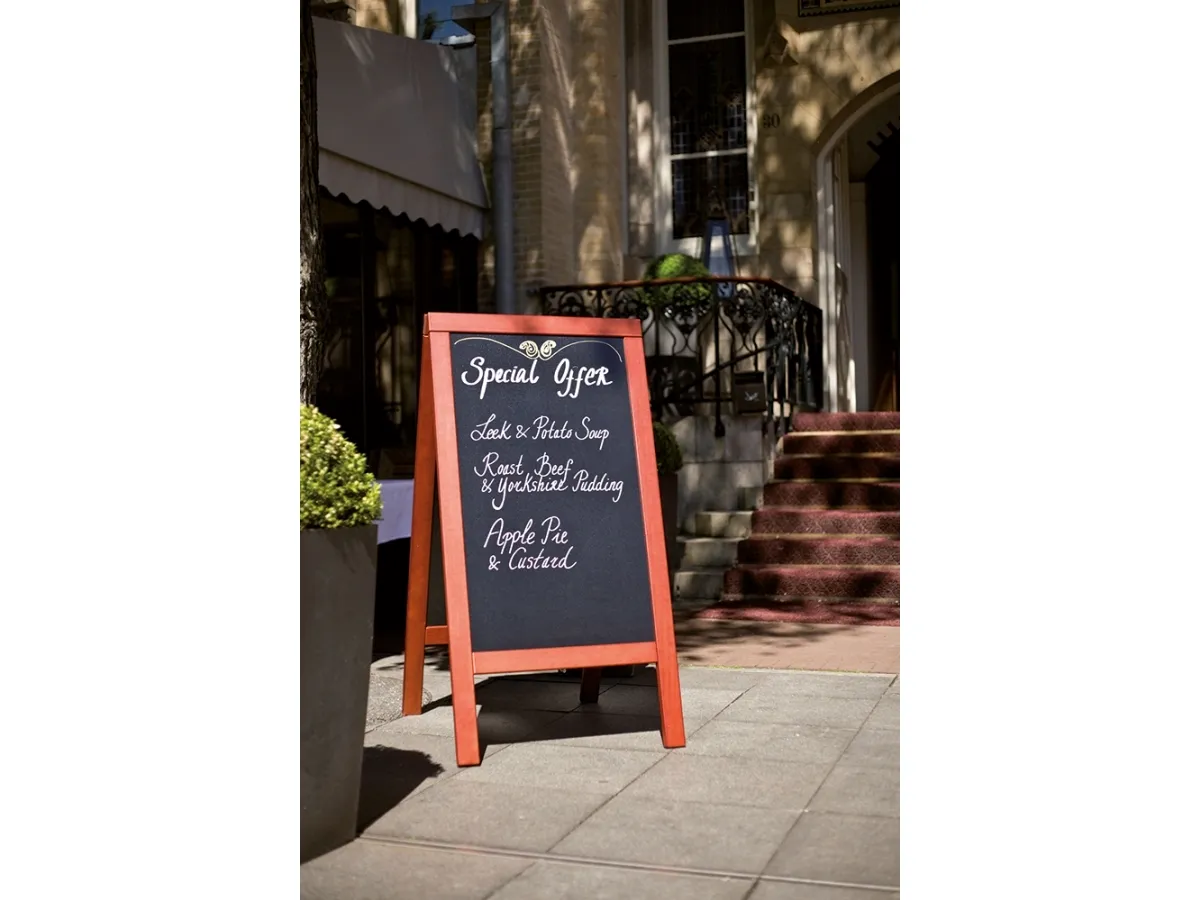 80
Special Offer
Leek & Potato Soup
Roast Beef
& Yorkshire Pudding
Apple Pie
& Custard